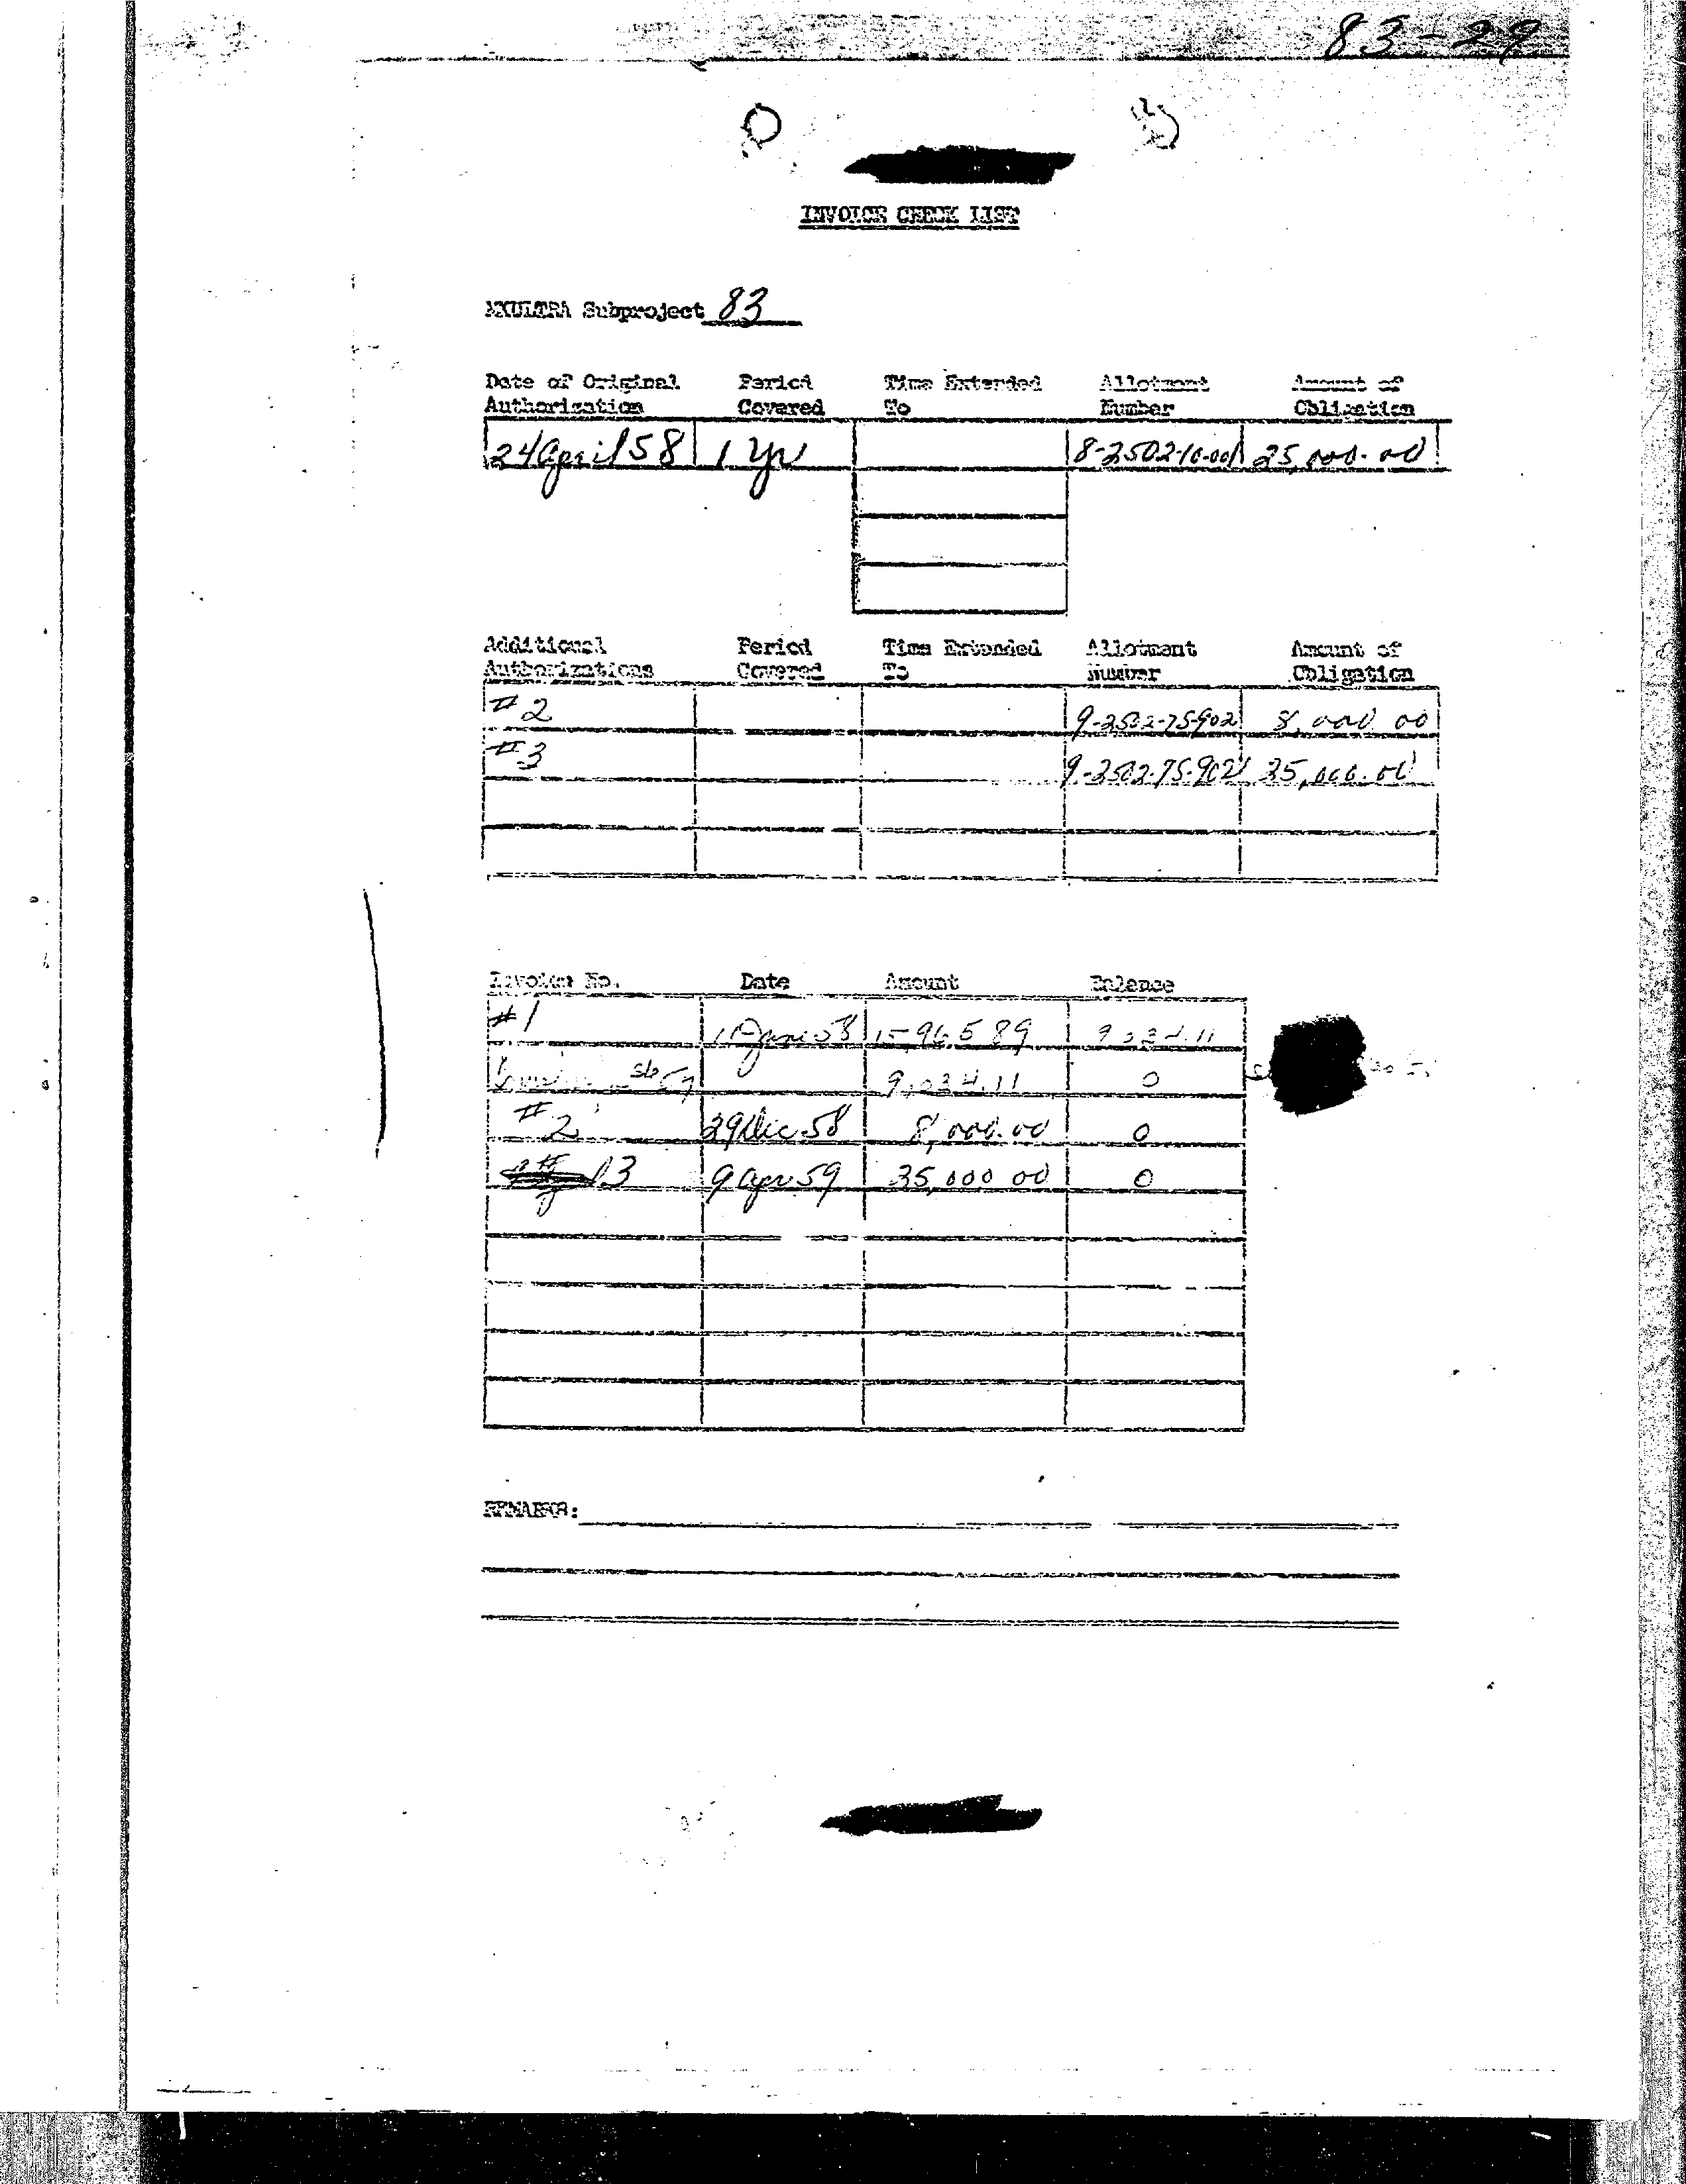 83-29
INVOICE CHECK LIST
MKULTRA Subproject 83
Date of Original Authorization Period Covered Time Extended To Allotment Number Amount of Obligation
24 April 58 1 yr 8-2502-10-001 25,000.00
Additional Authorizations Period Covered Time Extended To Allotment Number Amount of Obligation
#2 9-2502-75-902 8,000 00
#3 9-2502-75-902 35,000.00
Invoice No. Date Amount Balance
#1 June 58 15,965 89 9 034.11
9,034.11 0
#2 29 Dec 58 8,000.00 0
13 9 Apr 59 35,000 00 0
REMARKS: